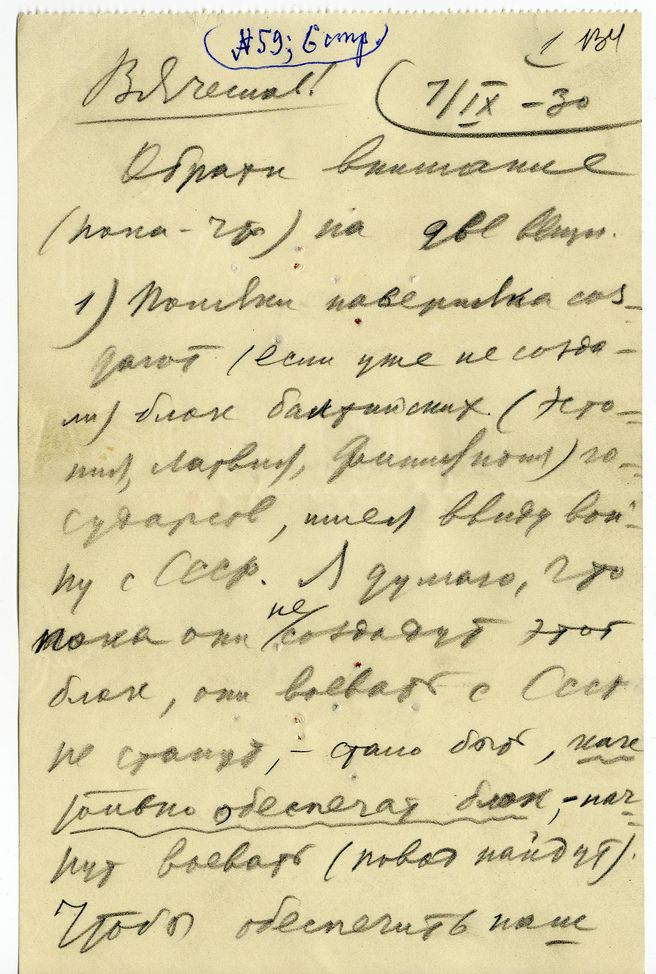 №59; 6 стр.
1 134
Вячеслав!
1/IX – 30
Обрати внимание
(пока-что) на две вещи.
1) Поляки наверняка соз-
дают (если уже не созда-
ли) блок балтийских (Эсто-
ния, Латвия, Финляндия) го-
сударств, имея ввиду вой-
ну с СССР. Я думаю, что
пока они не создадут этот
блок, они воевать с СССР
не станут, – стало быть, как
только обеспечат блок, – нач-
нут воевать (повод найдут).
Чтобы обеспечить наш